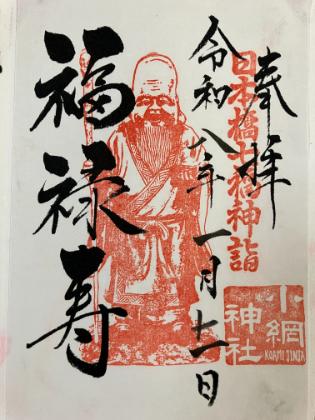 奉拝
日本橋七福神詣
令和八年一月十一日
福禄寿
小網
神社
KOAMI JINJA